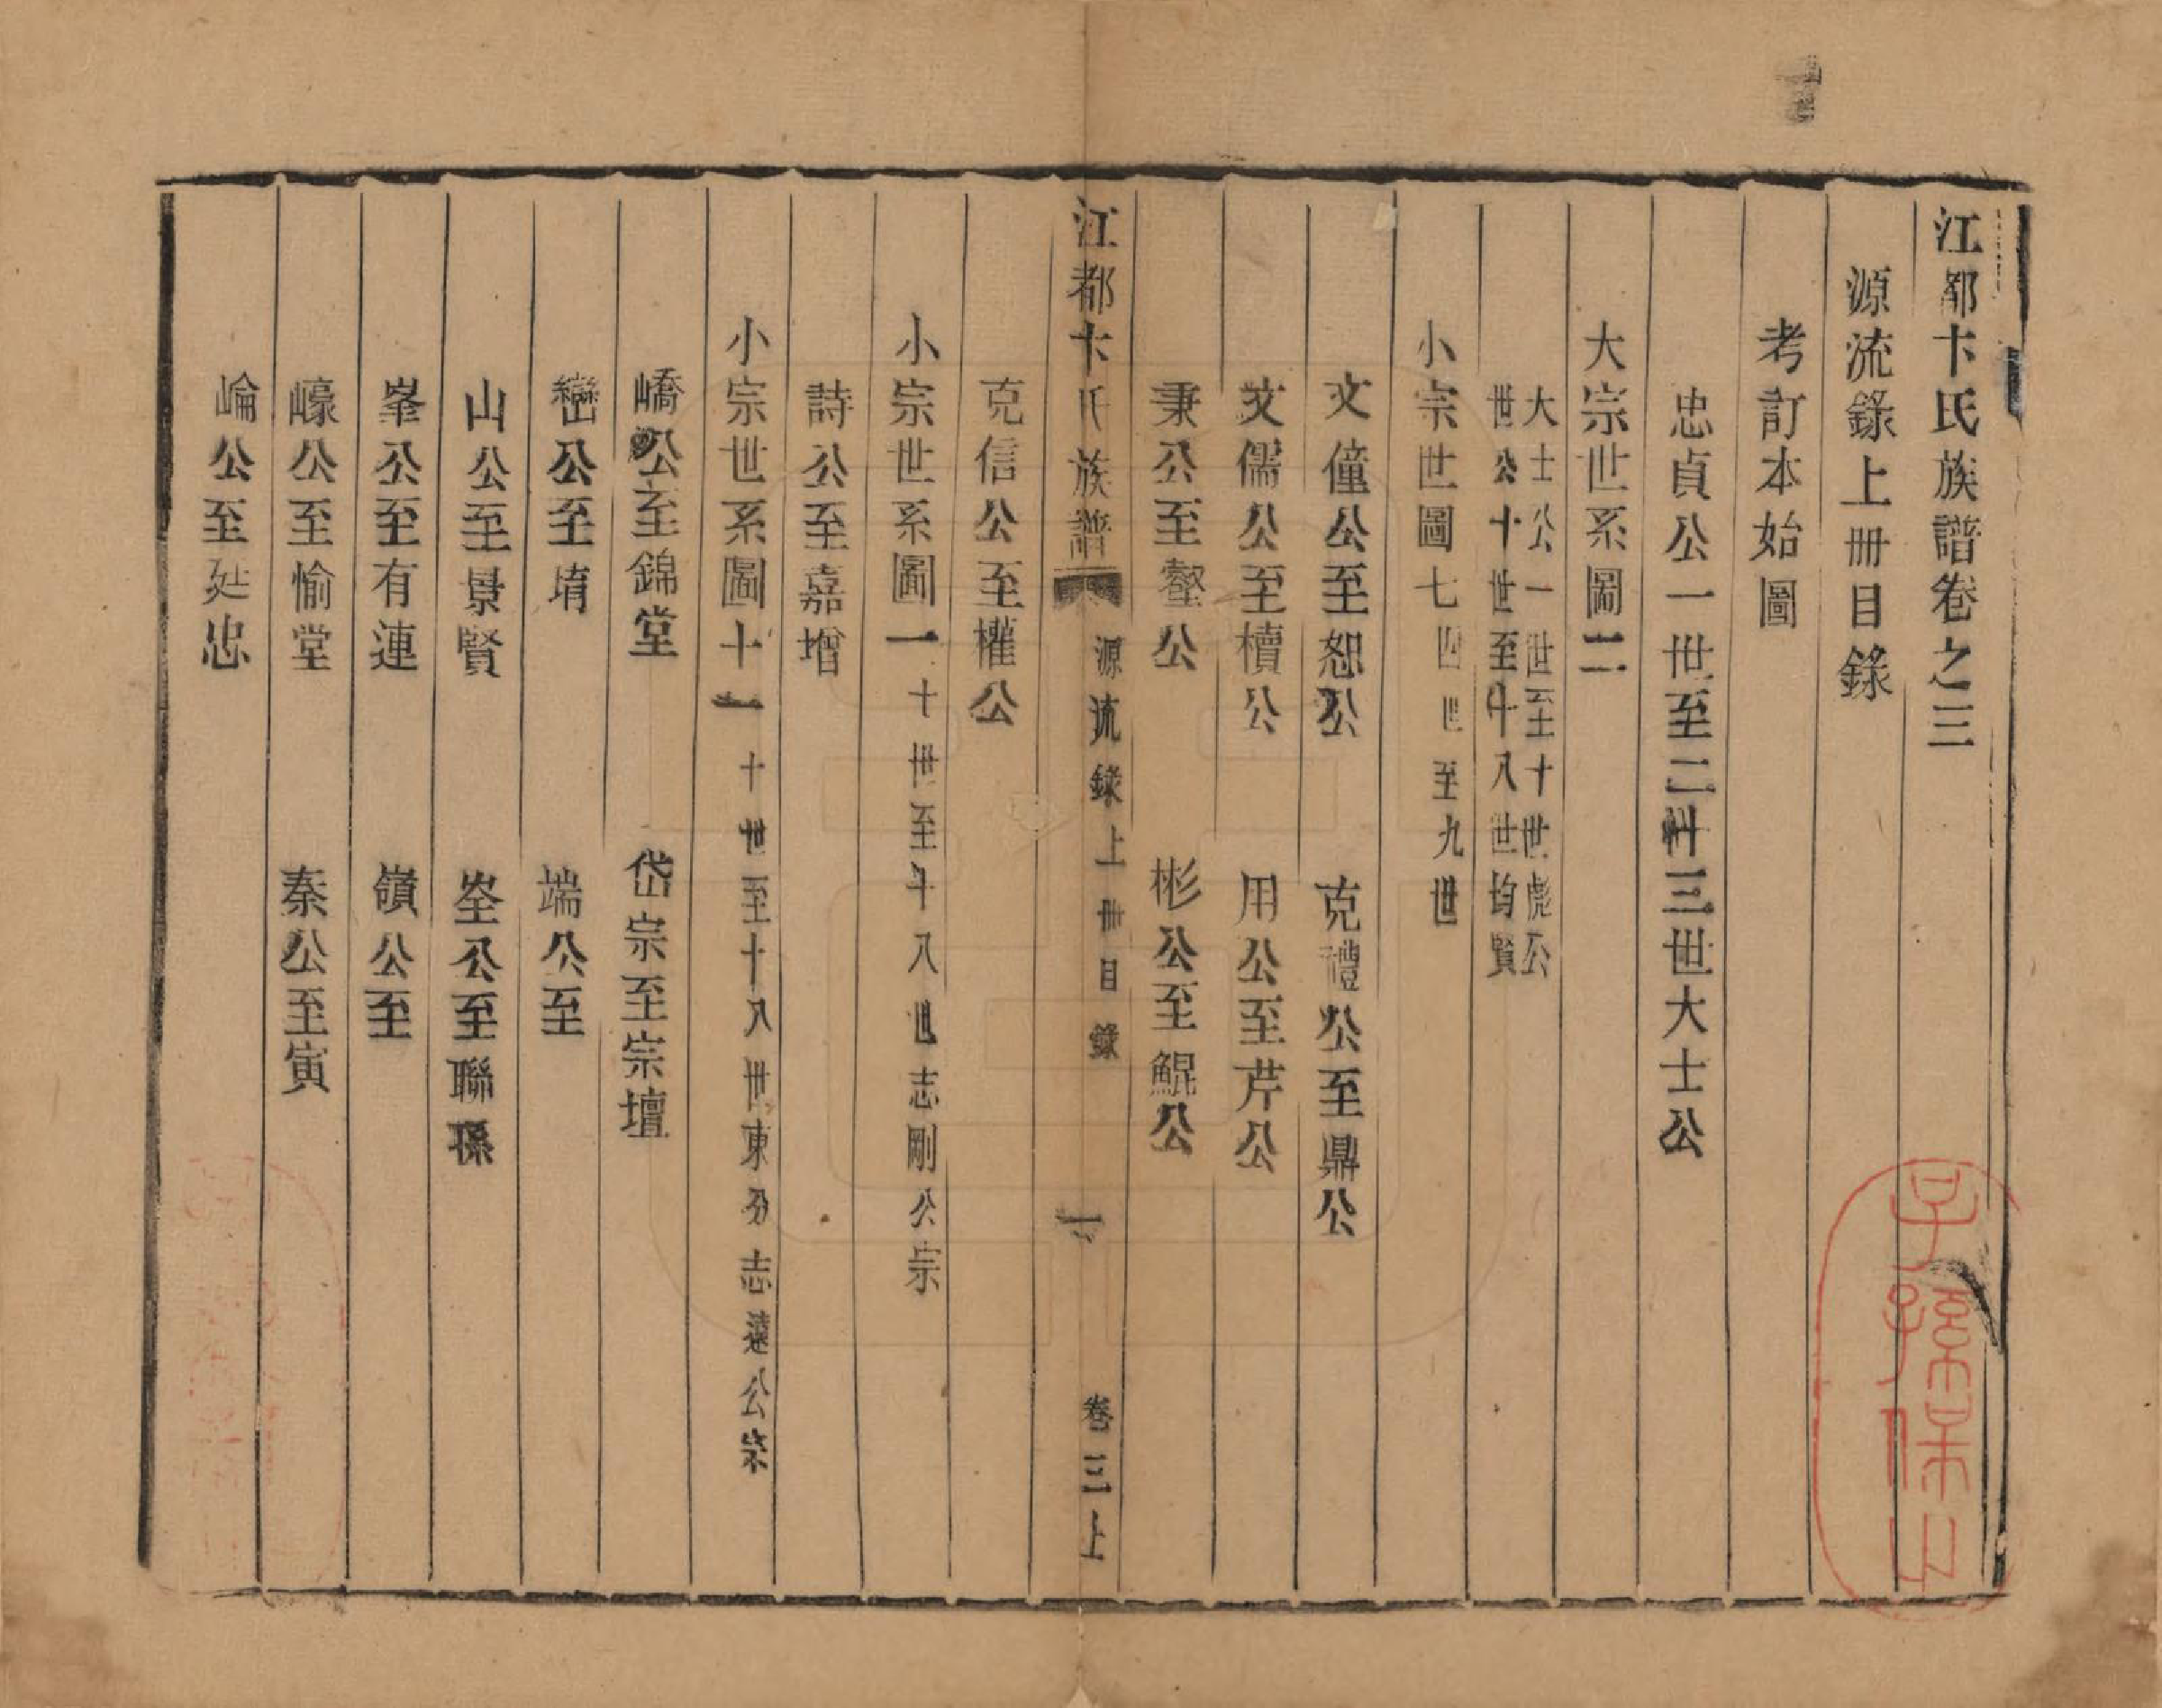 江都卞氏族譜卷之三
源流錄上冊目錄
考訂本始圖
忠貞公一世至二卅三世大士公
大宗世系圖二
大士公一世至十世彪公
世公十世至十八世均賢
小宗世圖七 四世至九世
文僮公至恕公 克禮公至鼎公
文儒公至櫝公 用公至芹公
秉公至壑公 彬公至鯤公
江都卞氏族譜 源流錄上冊目錄 一 卷三上
克信公至權公
小宗世系圖一 十世至十八世志剛公宗
詩公至嘉增
小宗世系圖十一 十世至十八世東分志遠公宗
嶠公至錦堂 岱宗至宗壇
巒公至堉 端公至
山公至景賢 峑公至聯孫
峯公至有連 嶺公至
嶑公至愉堂 秦公至寅
崘公至廷忠
子孫保之